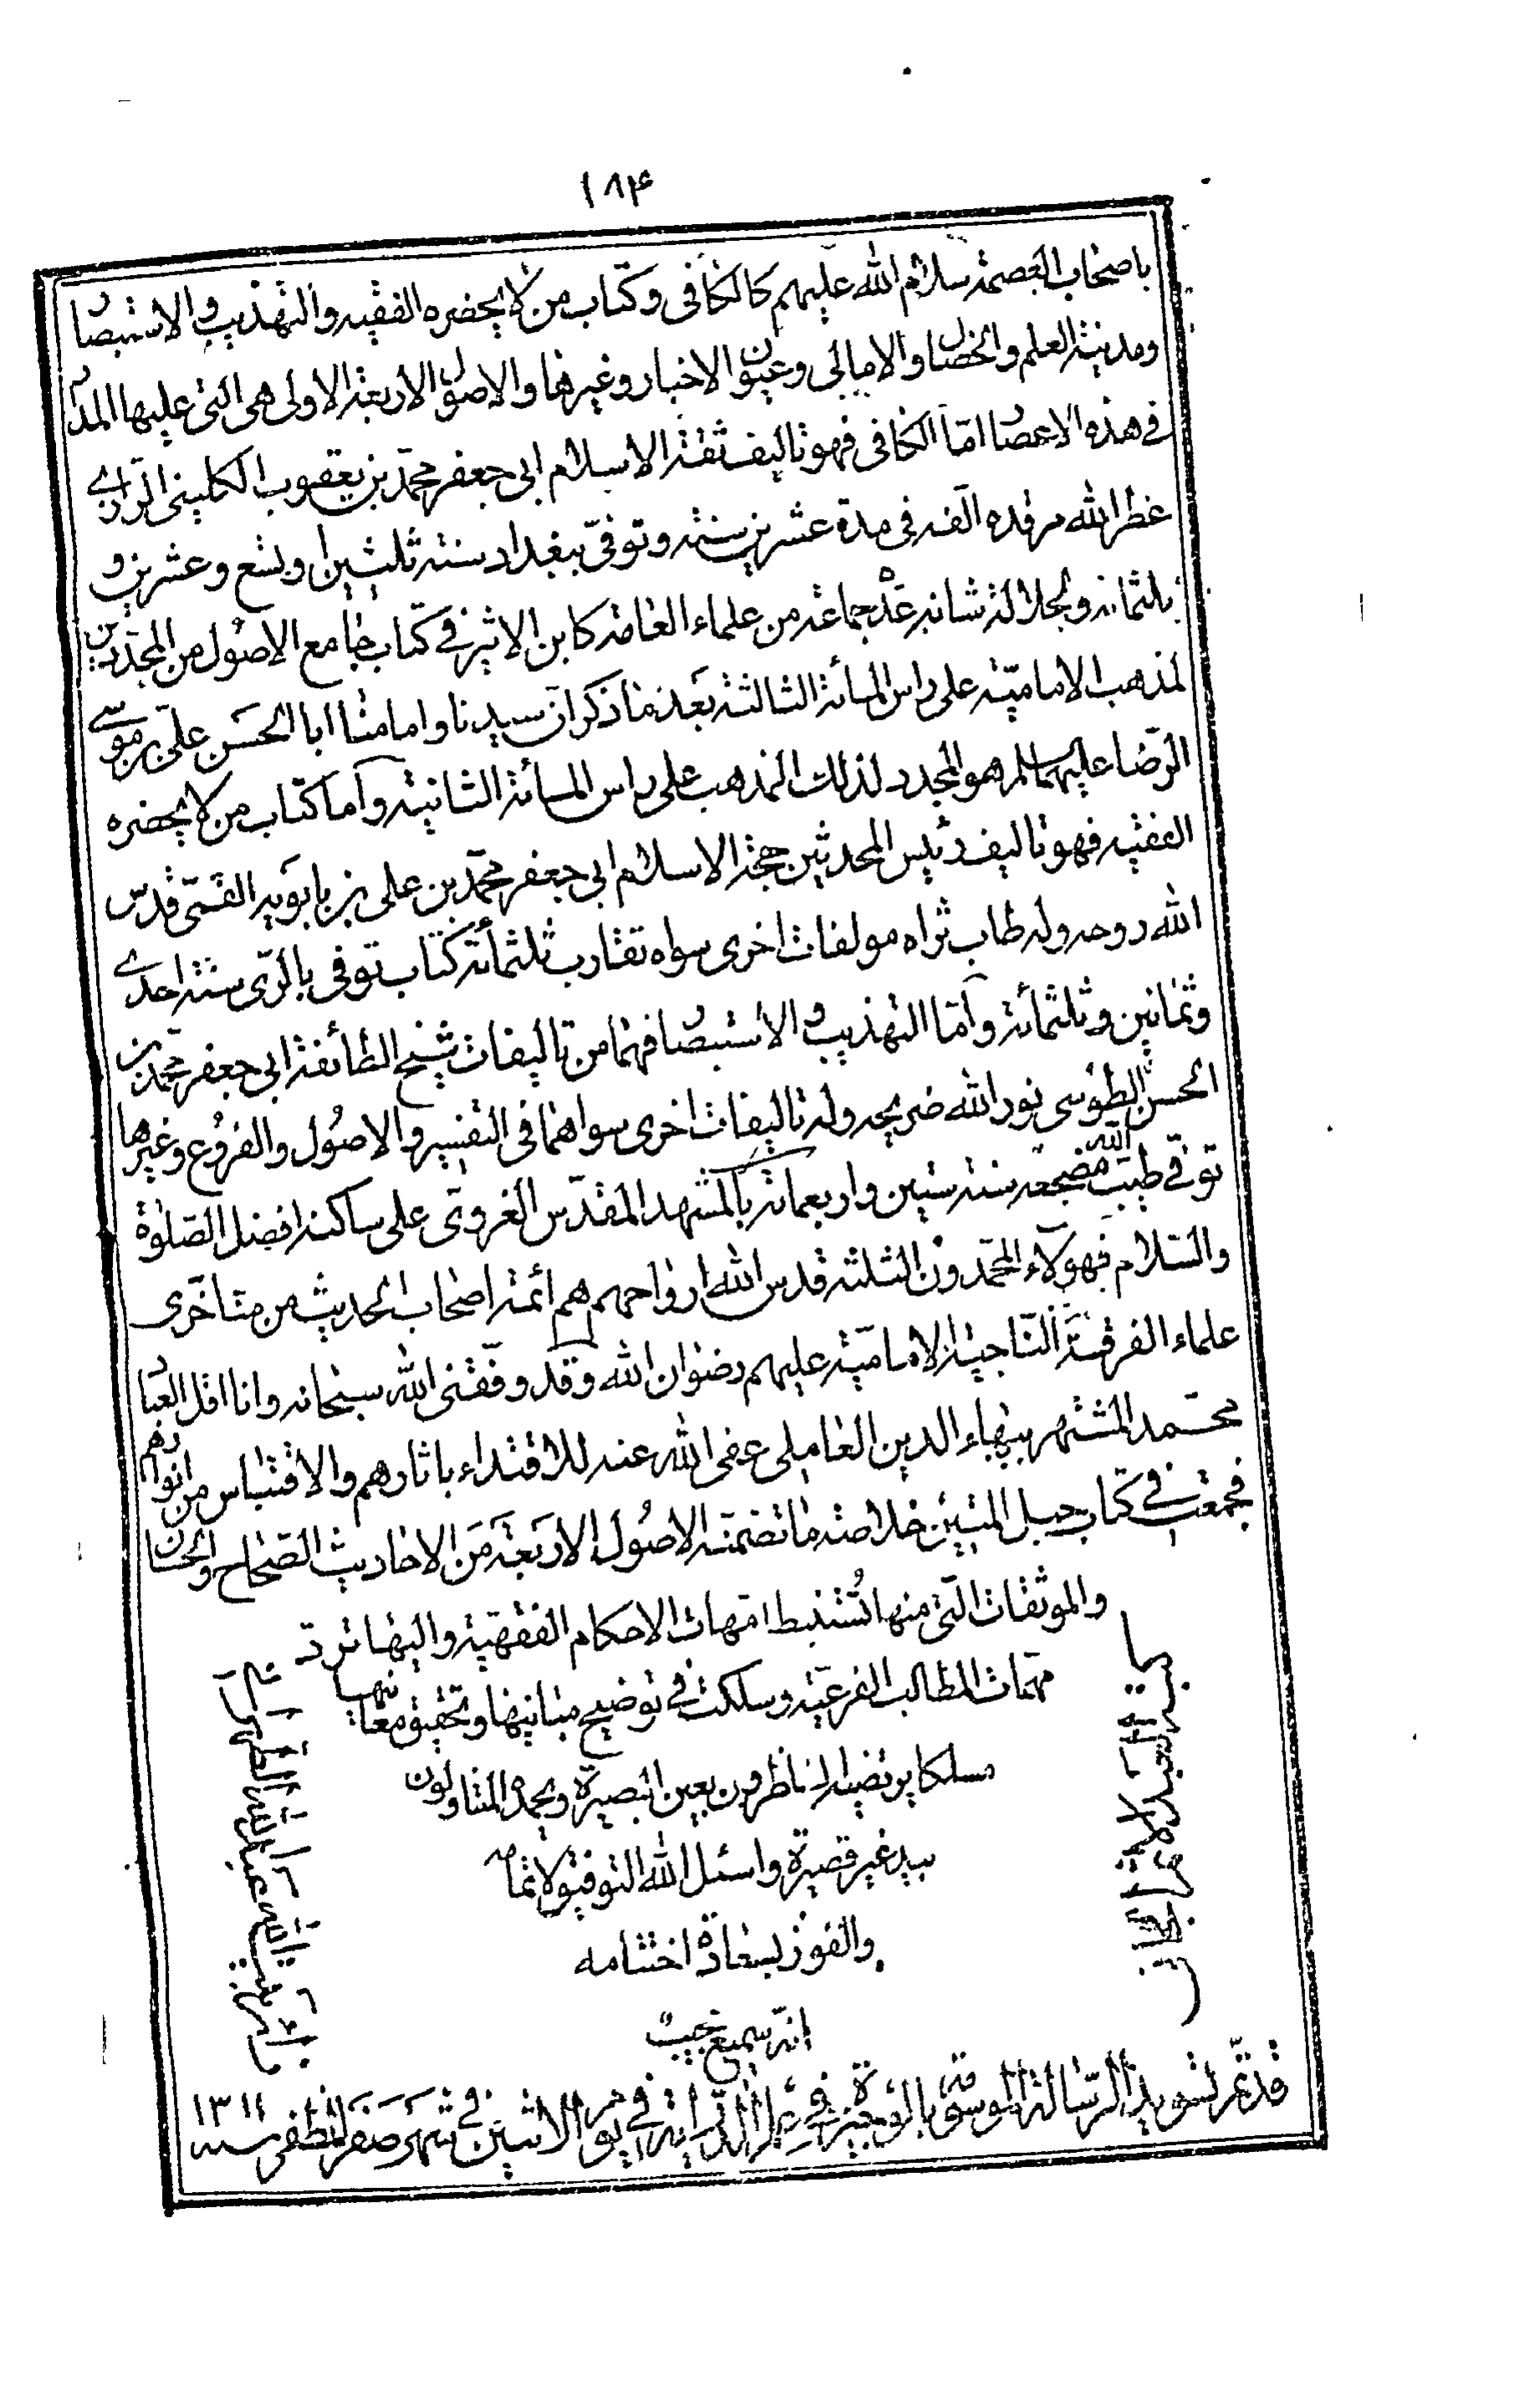 ۱۸۴
باصحاب العصمة سلام الله عليهم كالكافى وكتاب من لا يحضره الفقيه والتهذيب والاستبصار
ومدينة العلم والخصال والامالى وعيون الاخبار وغيرها والاصول الاربعة الاولى هى التى عليها المدار
فى هذه الاعصار امّا الكافى فهو تاليف ثقة الاسلام ابى جعفر محمّد بن يعقوب الكلينى الرّازى
عطر الله مرقده الفه فى مدة عشرين سنة وتوفّى ببغداد سنة ثلثين او تسع وعشرين و
ثلثمائة ولجلالة شانه عدّه جماعة من علماء العامة كابن الاثير فى كتاب جامع الاصُول من المجدّدين
لمذهب الاماميّة على راس المائة الثالثة بعد ما ذكر انّ سيدنا وامامنا ابا الحسَن علىّ بن موسى
الرّضا عليهما السلم هو المجدد لذلك المذهب على راس المائة الثانية وامّا كتاب من لا يحضره
الفقيه فهو تاليف رئيس المحدثين حجة الاسلام ابى جعفر محمّد بن على بن بابويه القمّى قدّس
الله روحه وله طاب ثراه مولفات اخرى سواه تقارب ثلثمائة كتاب توفى بالرّى سنة احدى
وثمانين وثلثمائة وامّا التهذيب والاستبصار فهما من تاليفات شيخ الطائفة ابى جعفر محمّد بن
الحسن الطوسى نور الله ضريحه وله تاليفات اخرى سواهما فى التفسير والاصُول والفروُع وغيرها
توفى طيّب الله مضجعه سنة ستين واربعمائة بالمشهد المقدّس الغروىّ على ساكنه افضل الصّلوة
والسّلام فهولاء المحمّدون الثلثة قدس الله ارواحهم هم ائمة اصحاب الحديث من متاخّرى
علماء الفرقة النّاجية الاماميّة عليهم رضوان الله وقد وفّقنى الله سبحانه وانا اقل العباد
محمّد المشتهر ببهاء الدين العاملى عفى الله عنه للاقتداء باثارهم والاقتباس من انوارهم
فجمعت فى كتاب حبل المتين خلاصة ما تضمنه الاصُول الاربعة من الاحاديث الصّحاح والحسان
والموثقات الّتى منها تُستنبط امّهات الاحكام الفقهية واليها ترد
مهمّات المطالب الفرعيّة وسلكت فى توضيح مبانيها وتحقيق معانيها
مسلكا يرتضيه الناظرون بعين البصيرة ويحمده المتناولون
بيد غير قصيرة واسئل الله التوفيق لاتمامه
والفوز بسعادة اختتامه
انّه سميع مجيب
قد تمّ تسويد الرّسالة الموسومة بالوجيزة فى علم الدّراية فى يوم الاثنين فى شهر صفر المظفر سنه ۱۳۱۱